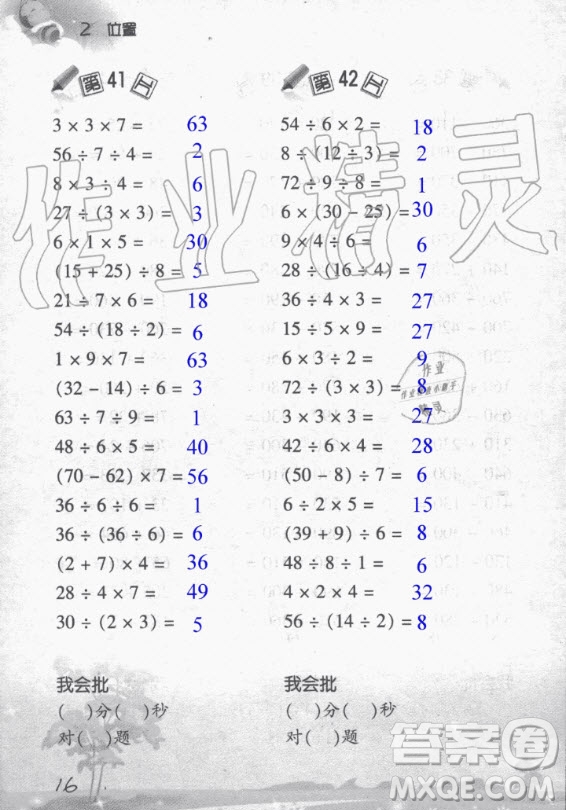 2 位置
第41页
3 × 3 × 7 = 63
56 ÷ 7 ÷ 4 = 2
8 × 3 ÷ 4 = 6
27 ÷ (3 × 3) = 3
6 × 1 × 5 = 30
(15 + 25) ÷ 8 = 5
21 ÷ 7 × 6 = 18
54 ÷ (18 ÷ 2) = 6
1 × 9 × 7 = 63
(32 − 14) ÷ 6 = 3
63 ÷ 7 ÷ 9 = 1
48 ÷ 6 × 5 = 40
(70 − 62) × 7 = 56
36 ÷ 6 ÷ 6 = 1
36 ÷ (36 ÷ 6) = 6
(2 + 7) × 4 = 36
28 ÷ 4 × 7 = 49
30 ÷ (2 × 3) = 5
我会批
( )分( )秒
对( )题
第42页
54 ÷ 6 × 2 = 18
8 ÷ (12 ÷ 3) = 2
72 ÷ 9 ÷ 8 = 1
6 × (30 − 25) = 30
9 × 4 ÷ 6 = 6
28 ÷ (16 ÷ 4) = 7
36 ÷ 4 × 3 = 27
15 ÷ 5 × 9 = 27
6 × 3 ÷ 2 = 9
72 ÷ (3 × 3) = 8
3 × 3 × 3 = 27
42 ÷ 6 × 4 = 28
(50 − 8) ÷ 7 = 6
6 ÷ 2 × 5 = 15
(39 + 9) ÷ 6 = 8
48 ÷ 8 ÷ 1 = 6
4 × 2 × 4 = 32
56 ÷ (14 ÷ 2) = 8
我会批
( )分( )秒
对( )题
16
作业精灵
作业
精灵
答案圈
MXQE.COM